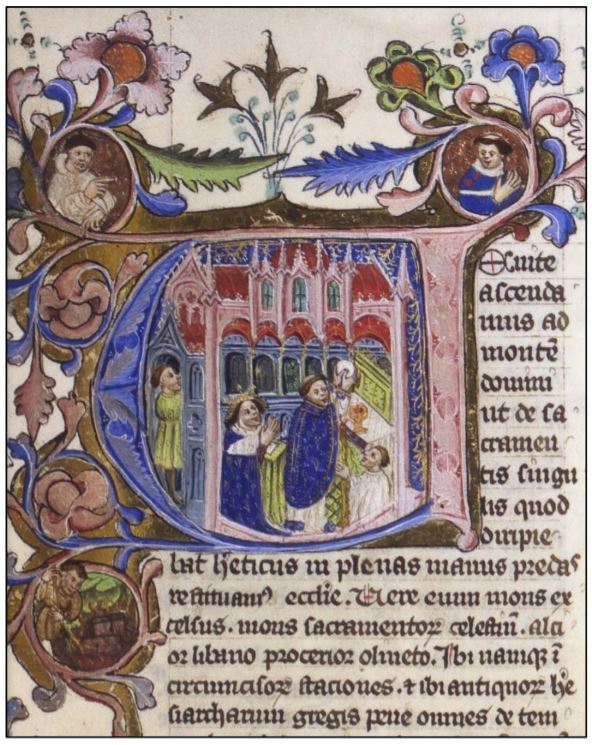 Venite
ascenda
mus ad
montē
domini
ut de sa
cramen
tis singu
lis quod
diripie
bat h̄eticus in plenas manus predas
restituam⁹ eccl̄ie. Vere enim mons ex
celsus. mons sacramentoꝝ celestiū. alci
or libano procerior oliueto. Ibi namqꝫ ī
circumcisoꝝ staciones. ⁊ ibi antiquoꝝ he
siarcharum gregis pene omnes de tem